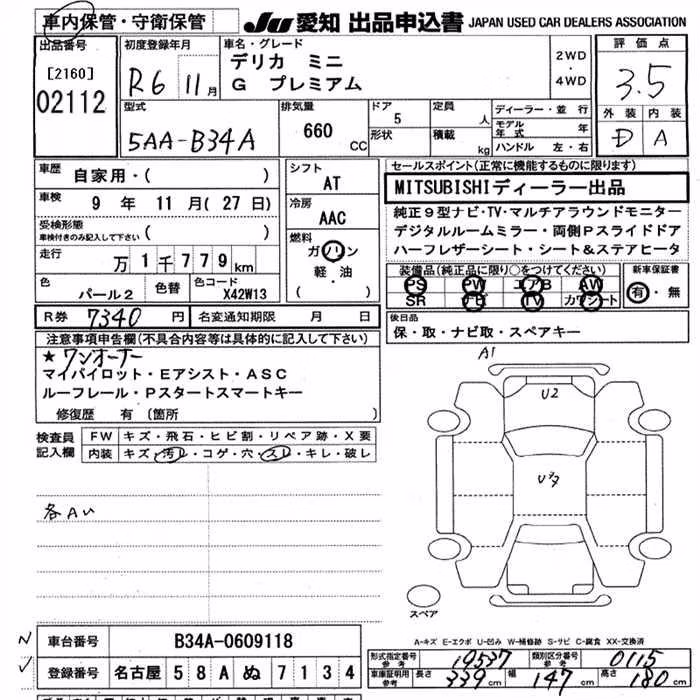 車内保管・守衛保管
JU 愛知 出品申込書 JAPAN USED CAR DEALERS ASSOCIATION
出品番号
[2160]
02112
初度登録年月
R6 11月
車名・グレード
デリカ ミニ
G プレミアム
2WD
・
4WD
評価点
3.5
外装 内装
D A
型式
5AA-B34A
排気量
660 CC
ドア
5
形状
定員
人
積載
kg
ディーラー・並行
モデル年式 年
ハンドル 左・右
車歴
自家用・( )
車検
9 年 11 月( 27 日)
受検形態
車検付きのみ記入して下さい ( )
走行
万 1 千 7 7 9 km
色
パール2
色替
色コード
X42W13
シフト
AT
冷房
AAC
燃料
ガソリン
軽・油
( )
セールスポイント(正常に機能するものに限ります)
MITSUBISHIディーラー出品
純正9型ナビ・TV・マルチアラウンドモニター
デジタルルームミラー・両側Pスライドドア
ハーフレザーシート・シート&ステアヒータ
装備品(純正品に限り○をつけてください)
PS PW エアB AW
SR ナビ TV カワシート
新車保証書
有・無
R券 7340 円 名変通知期限 月 日
後日品
保・取・ナビ取・スペアキー
注意事項申告欄(不具合内容等は具体的に記入して下さい)
★ワンオーナー
マイパイロット・Eアシスト・ASC
ルーフレール・Pスタートスマートキー
修復歴 有 (箇所
検査員
記入欄
FW キズ・飛石・ヒビ割・リペア跡・X要
内装 キズ・汚レ・コゲ・穴・スレ・キレ・破レ
各Aい
A1
U2
スペア
A-キズ E-エクボ U-凹み W-補修跡 S-サビ C-腐食 XX-交換済
車台番号 B34A-0609118
登録番号 名古屋 5 8 A ぬ 7 1 3 4
形式指定番号 参考 19537 類別区分番号 参考 0115
車庫証明用 参考 長さ 339 cm 幅 147 cm 高さ 180 cm